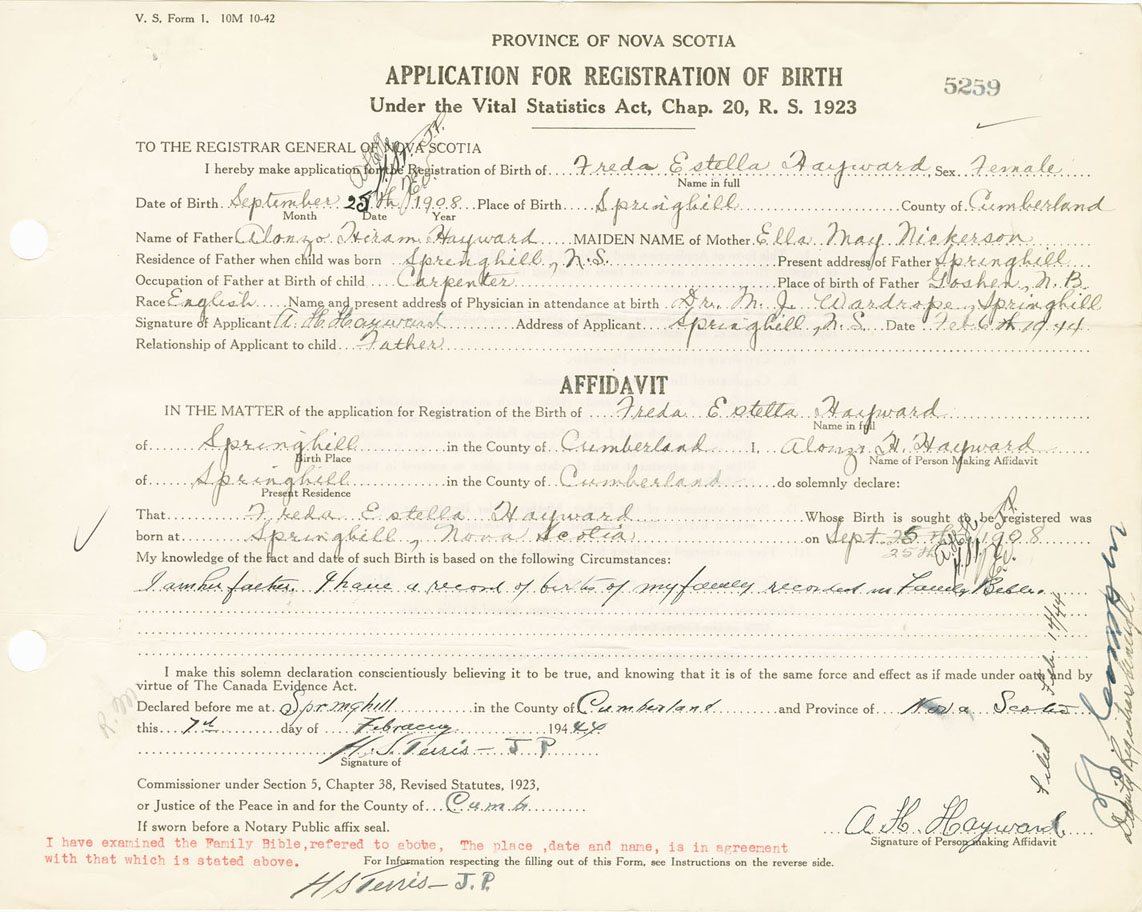 V. S. Form 1. 10M 10-42
PROVINCE OF NOVA SCOTIA
APPLICATION FOR REGISTRATION OF BIRTH
5259
Under the Vital Statistics Act, Chap. 20, R. S. 1923
TO THE REGISTRAR GENERAL OF NOVA SCOTIA
I hereby make application for the Registration of Birth of Freda Estella Hayward Sex Female
Name in full
Date of Birth September 25th 1908 Place of Birth Springhill County of Cumberland
Month Date Year
Name of Father Alonzo Hiram Hayward MAIDEN NAME of Mother Ella May Nickerson
Residence of Father when child was born Springhill, N.S. Present address of Father Springhill
Occupation of Father at Birth of child Carpenter Place of birth of Father Goshen, N.B.
Race English Name and present address of Physician in attendance at birth Dr. M. J. Wardrope, Springhill
Signature of Applicant A. H. Hayward Address of Applicant Springhill, N.S. Date Feb 6th 1944
Relationship of Applicant to child Father
AFFIDAVIT
IN THE MATTER of the application for Registration of the Birth of Freda Estella Hayward
Name in full
of Springhill in the County of Cumberland I, Alonzo H. Hayward
Birth Place Name of Person Making Affidavit
of Springhill in the County of Cumberland do solemnly declare:
Present Residence
That Freda Estella Hayward Whose Birth is sought to be registered was
born at Springhill, Nova Scotia on Sept 25th 1908
25th
My knowledge of the fact and date of such Birth is based on the following Circumstances:
I am her father. I have a record of births of my family recorded in Family Bible.
I make this solemn declaration conscientiously believing it to be true, and knowing that it is of the same force and effect as if made under oath and by
virtue of The Canada Evidence Act.
Declared before me at Springhill in the County of Cumberland and Province of Nova Scotia
this 7th day of February 1944
H. S. Terris - J. P.
Signature of
Commissioner under Section 5, Chapter 38, Revised Statutes, 1923,
or Justice of the Peace in and for the County of Cumb
If sworn before a Notary Public affix seal.
A H Hayward
Signature of Person making Affidavit
I have examined the Family Bible,refered to above, The place ,date and name, is in agreement
with that which is stated above.
For Information respecting the filling out of this Form, see Instructions on the reverse side.
H S Terris - J.P.
Filed Feb. 14/44
Deputy Registrar General